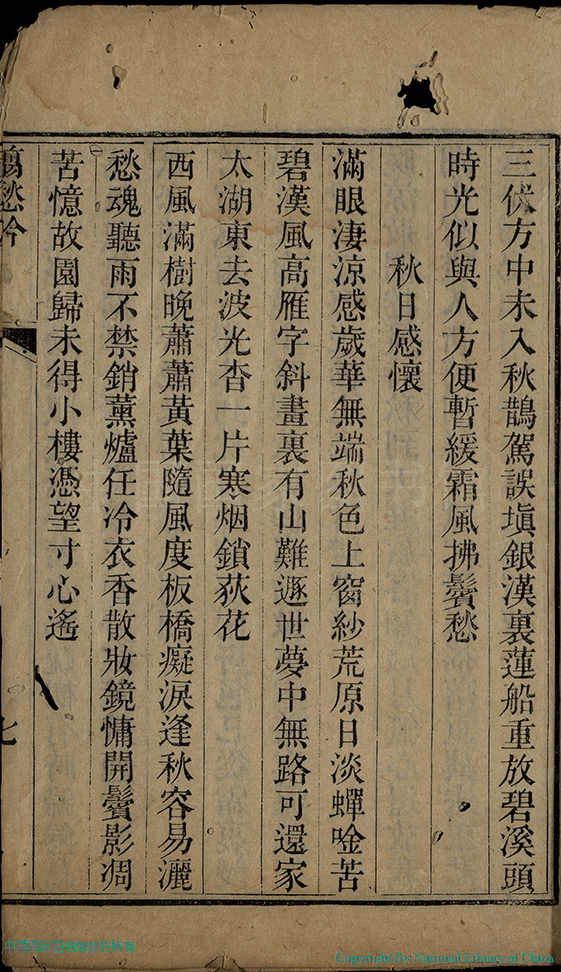 三伏方中未入秋鵲駕誤塡銀漢裏蓮船重放碧溪頭
時光似與人方便暫緩霜風拂鬢愁
秋日感懷
滿眼淒涼感歲華無端秋色上窗紗荒原日淡蟬唫苦
碧漢風高雁字斜畫裏有山難遯世夢中無路可還家
太湖東去波光杳一片寒烟鎖荻花
西風滿樹晚蕭蕭黃葉隨風度板橋癡淚逢秋容易灑
愁魂聽雨不禁銷薰爐任冷衣香散妝鏡慵開鬢影凋
苦憶故園歸未得小樓憑望寸心遙
翦愁吟
七
Copyright By National Library of China